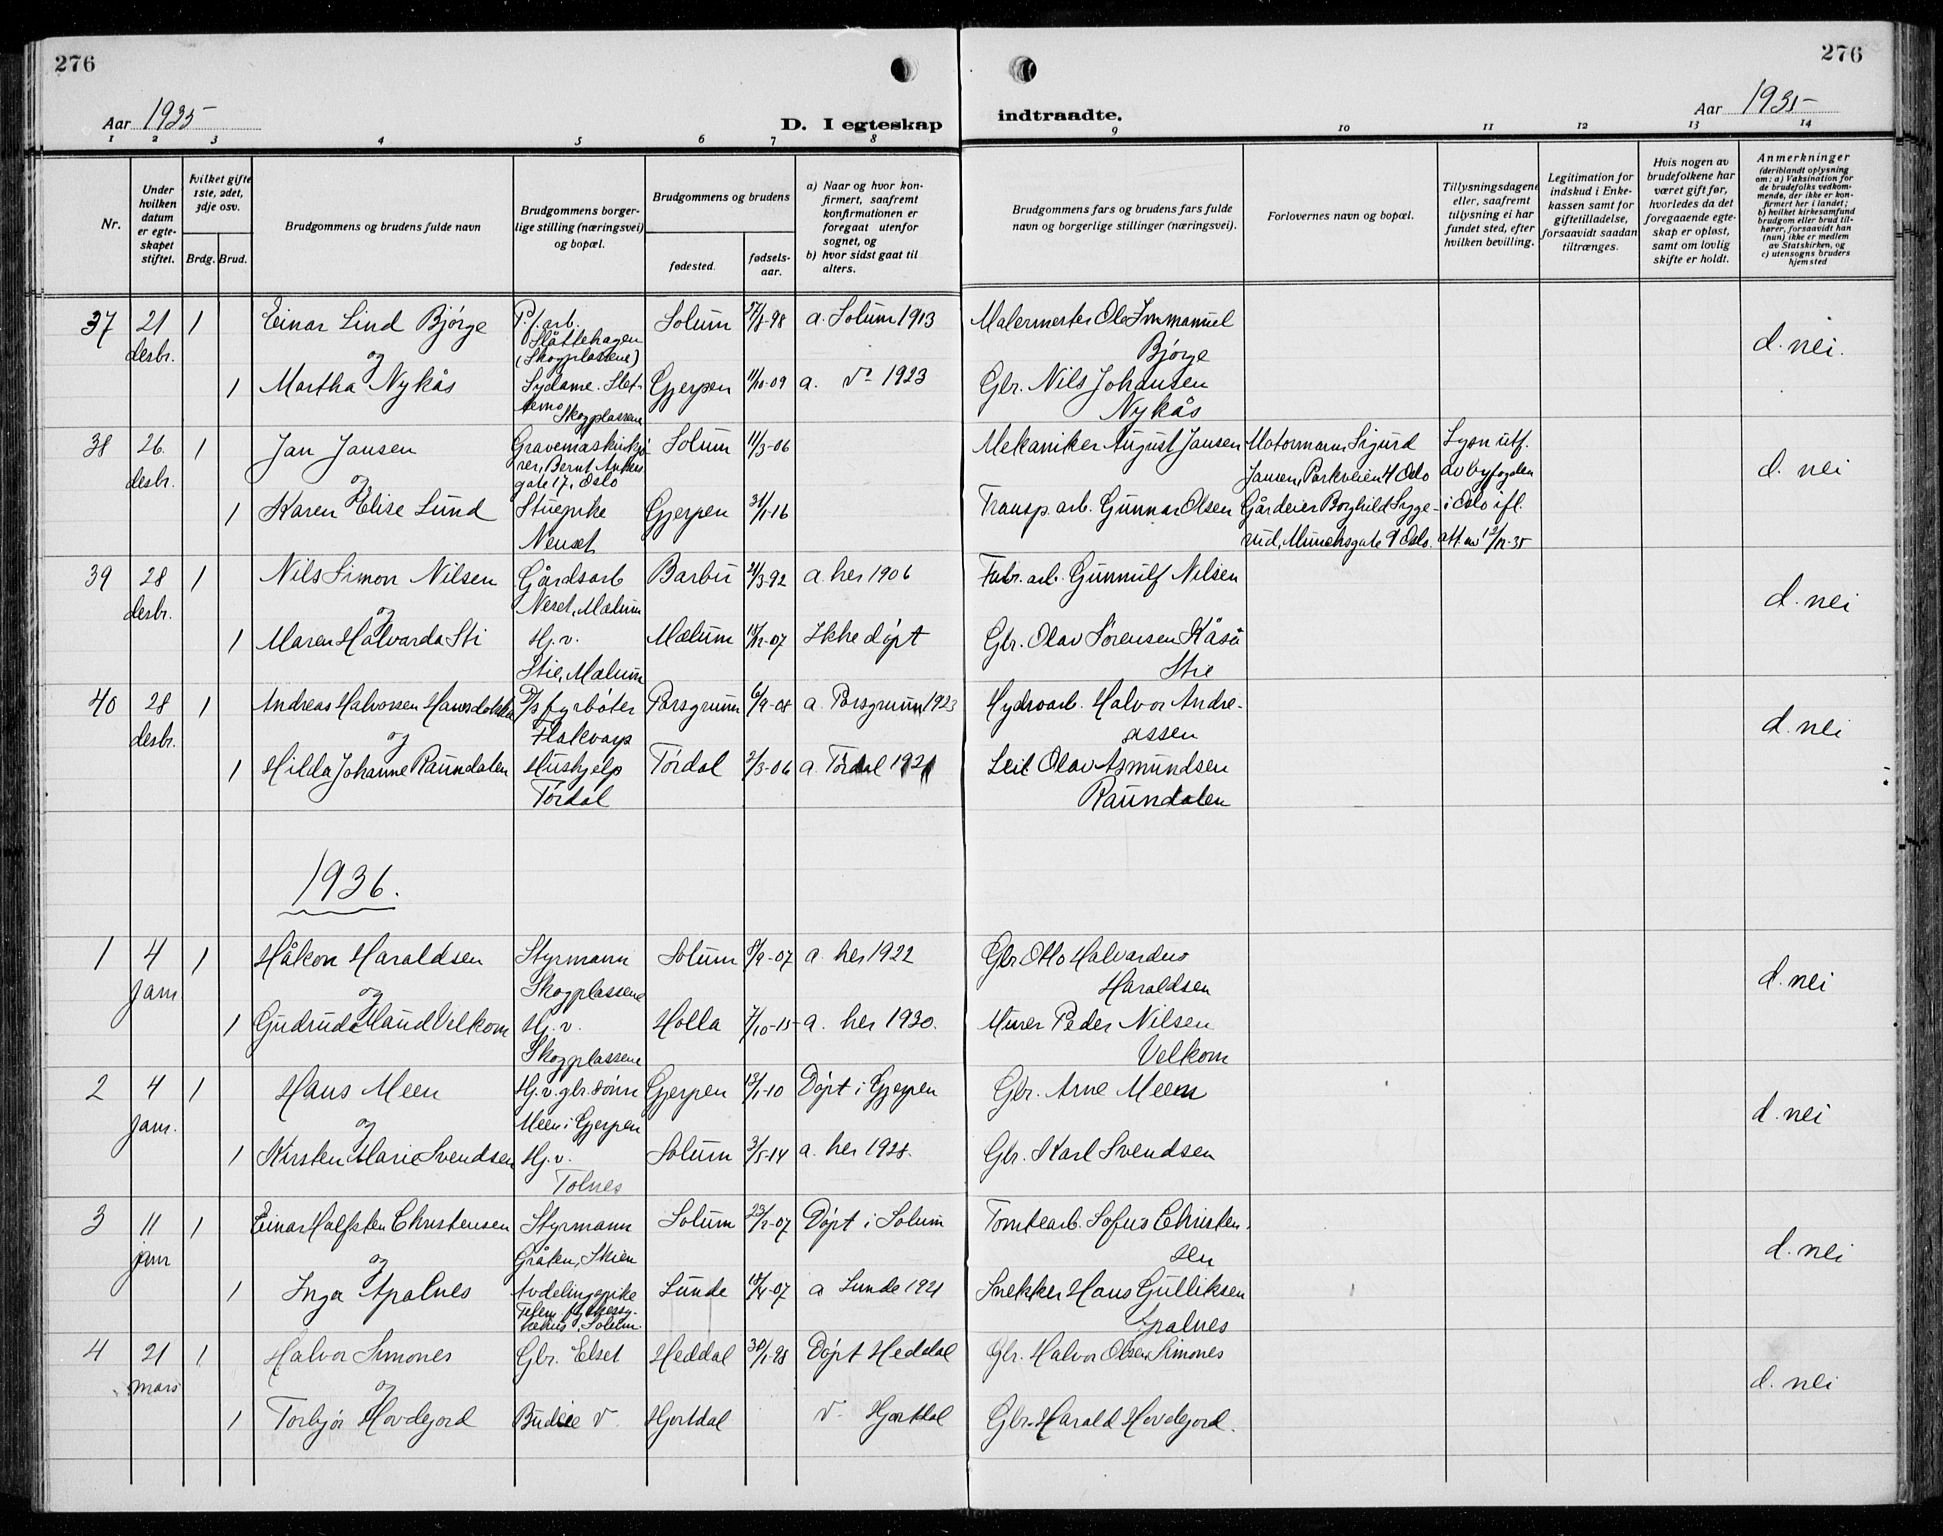 276
276
Aar 1935
D. I egteskap
indtraadte.
Aar 1935
1 2 3 4 5 6 7 8 9 10 11 12 13 14
Nr.
Under hvilken datum er egteskapet stiftet.
hvilket gifte 1ste, 2det, 3dje osv.
Brdg. Brud.
Brudgommens og brudens fulde navn
Brudgommens borgerlige stilling (næringsvei) og bopæl.
Brudgommens og brudens
fødested.
fødselsaar.
a) Naar og hvor konfirmert, saafremt konfirmationen er foregaaet utenfor sognet, og
b) hvor sidst gaat til alters.
Brudgommens fars og brudens fars fulde navn og borgerlige stillinger (næringsvei).
Forlovernes navn og bopæl.
Tillysningsdagene eller, saafremt tillysning ei har fundet sted, efter hvilken bevilling.
Legitimation for indskud i Enkekassen samt for giftetilladelse, forsaavidt saadan tiltrænges.
Hvis nogen av brudefolkene har været gift før, hvorledes da det foregaaende egteskap er opløst, samt om lovlig skifte er holdt.
Anmerkninger
(deriblandt oplysning om: a) Vaksination for de brudefolks vedkommende, der ikke er konfirmert her i landet; b) hvilket kirkesamfund brudgom eller brud tilhører, forsaavidt han (hun) ikke er medlem av Statskirken, og c) utensogns bruders hjemsted
37 21 desbr. 1 Einar Lind Bjørge P.f. arb. Slåttehagen (Skogplassene) Solum 27/8-98 a. Solum 1913 Malermester Ole Immanuel Bjørge d. nei.
og
1 Martha Nykås Sydame. Skogplassene Gjerpen 11/10-09 a. do 1923 Gbr. Nils Johansen Nykås
38 26. desbr. 1 Jan Jansen Gravemaskinkjører, Bernt Ankers gate 17, Oslo Solum 11/3-06 Mekaniker August Jansen Motormann Sigurd Jansen, Parkveien 4 Oslo Lysn utf. av byfogden d. nei
og
1 Karen Elise Lund Stuepike Nenset Gjerpen 31/1-16 Transp. arb. Gunnar Olsen Gårdeier Borghild Syggerud, Munchsgate 9 Oslo. i Oslo ifl. att. av 12/12-35
39 28 desbr. 1 Nils Simon Nilsen Gårdsarb Neset, Mælum Barbu 21/3-92 a. her 1906 Fabr. arb. Gunnulf Nilsen d. nei
og
1 Maren Halvarda Sti Hj. v. Stie, Mælum Mælum 18/12-07 Ikke døpt Gbr. Olav Sørensen Kåsa Stie
40 28 desbr. 1 Andreas Halvorsen fyrbøter Flakvarp Porsgrunn 6/9-08 a. Porsgrunn 1923 Hydroarb. Halvor Andreassen d. nei
og
1 Hilda Johanne Raundalen Hushjelp Tørdal Tørdal 2/3-06 a. Tørdal 1921 Olav Asmundsen Raundalen
1936.
1 4 jan 1 Håkon Haraldsen Styrmann Skogplassene Solum 8/9-07 a. her 1922 Gbr Otto Halvardus Haraldsen d. nei
og
1 Gudruda Maud Velkom Hj. v. Skogplassene Holla 7/10-15 a. her 1930. Murer Peder Nilsen Velkom
2 4 jan. 1 Hans Meen Hj. v. gbr. sønn Meen i Gjerpen Gjerpen 13/1-10 Døpt i Gjerpen Gbr. Arne Meen d. nei
og
1 Kirsten Marie Svendsen Hj. v. Tolnes Solum 3/5-14 a. her 1928. Gbr. Karl Svendsen
3 11 jan 1 Einar Halfsten Christensen Styrmann Gråten, Skien Solum 23/12-07 Døpt i Solum Tomtearb. Sofus Christensen d. nei
og
1 Inga Apalnes Avdelingspike Telem. sykehus, Solum. Lunde 18/4-07 a Lunde 1921 Snekker Hans Gulliksen Apalnes
4 21 mars 1 Halvor Simones Gbr. Elset Heddal 30/1-98 Døpt Heddal Gbr. Halvor Olsen Simones d. nei
og
1 Torbjør Hovdejord Budeie Hjartdal Hjartdal Gbr. Harald Hovdejord.